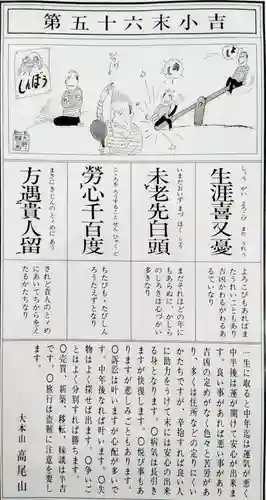 第五十六末小吉
しんぼう
生涯喜又憂
しょうがいよろこびまたうれう
よろこびもあればま
たうれいこともあり
吉凶かわるがわるあ
るていなり
未老先白頭
いまだおいずまづはくとう
まだそれほどの年に
もあらぬに、かしら
のしろきは心づかい
多きなり
勞心千百度
こころをろうすることせんひゃくど
ちたびも、たびしん
ろうたえずとなり
方遇貴人留
まさにきじんのとゞめにあう
されど貴人のとゞめ
にあいてちからをえ
たるかたちなり
一生に取ると中年迄は運気が悪く
中年後は運が開けて安心が出来ま
す。良い事があれば悪い事があり
吉凶の定めがなく色々と苦労があ
り、多くは住所などの定りにくい
かたちですが、辛抱すれば良い人
に助力をうけて末は安心の出来
る身となります。〇病気は長引き
ますが快復します。〇悦び事もあ
りますが悲しみごともあります。
〇訴訟は叶いますが心配が多いで
す。中年後なれば叶います。〇失
物はよく探せば出ます。〇争いご
とはよく分別すれば勝ちます。
〇売買、新築、移転、縁談は半吉
です。〇旅行は盗難に注意を要し
ます。
大本山 高尾山